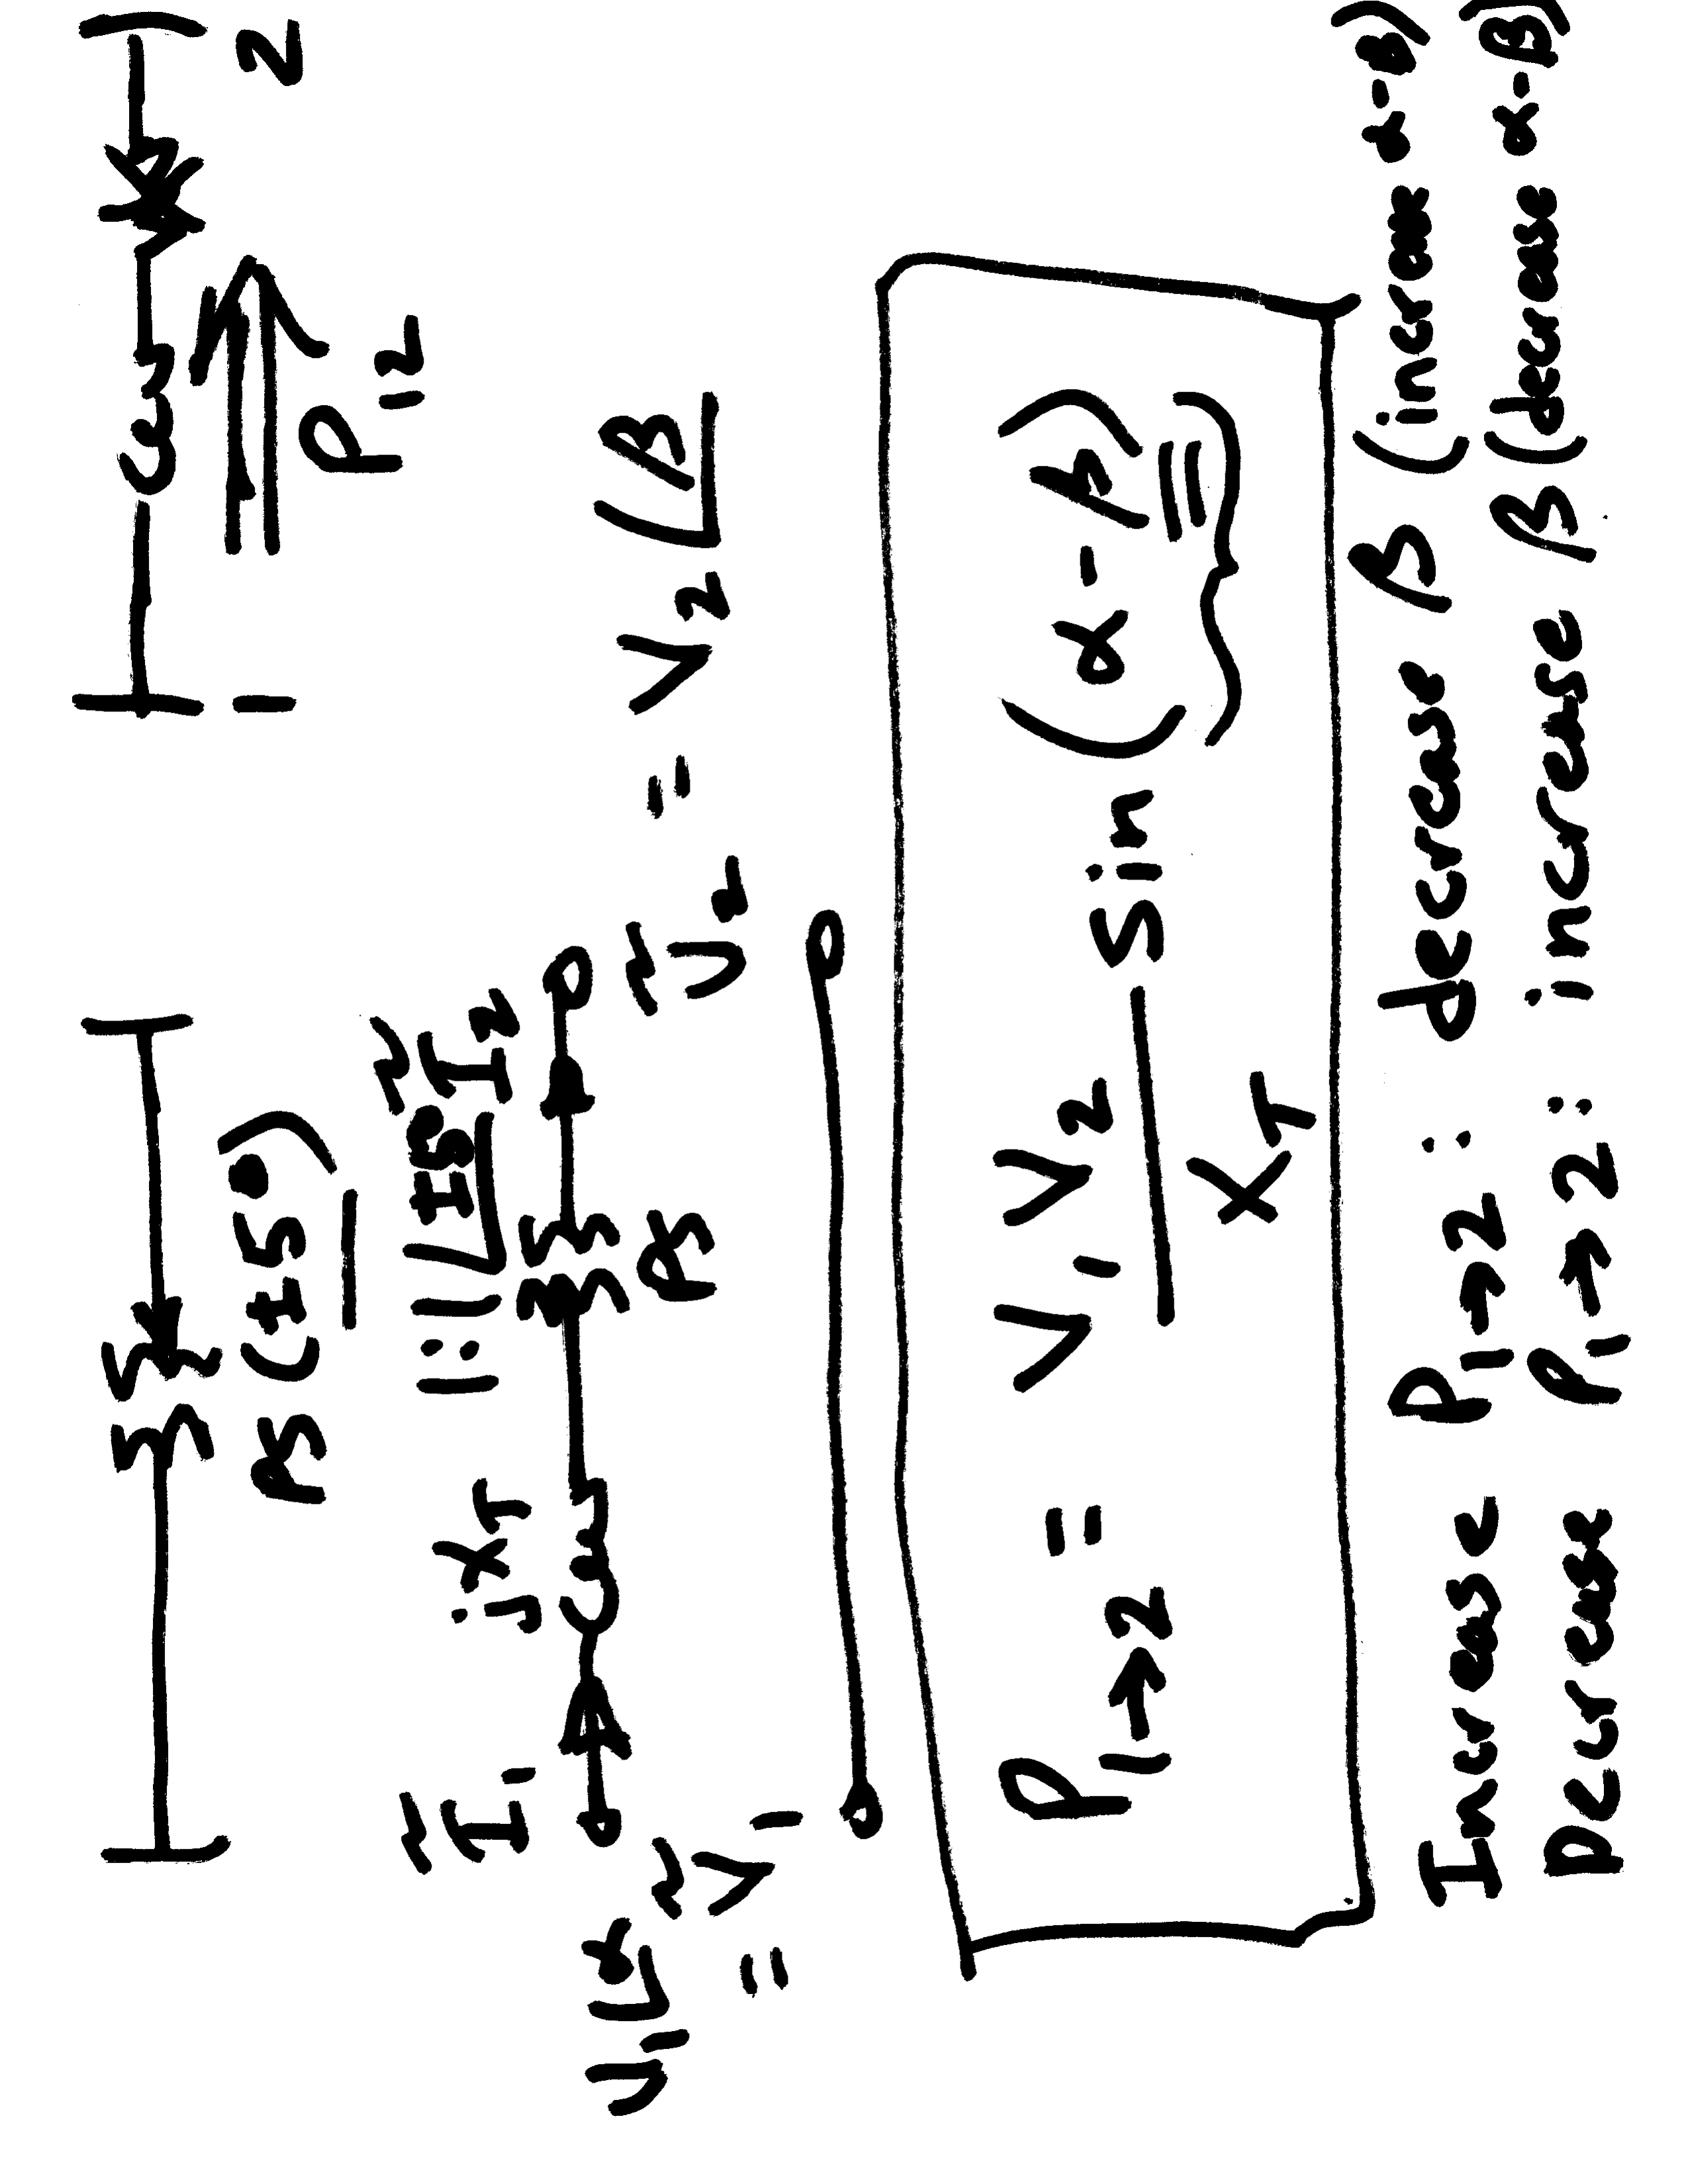 1 2
PS (±5°)
P12
Ĩ1 jXT 1:1∠±5° Ĩ2
PS
V1∠α = Ṽ1
Ṽ2 = V2∠β
P1→2 = V1V2 / XT Sin (α-β)
Increase P1→2: decrease β (increase α-β)
Decrease P1→2: increase β (decrease α-β)